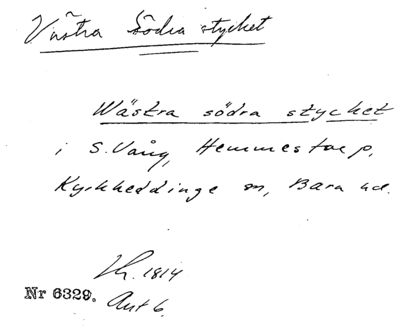 Västra Södra stycket
Wästra södra stycket
i S. Vång, Hemmestorp,
Kyrkheddinge sn, Bara hd.
Lh. 1814
Nr 6329. Akt 6.